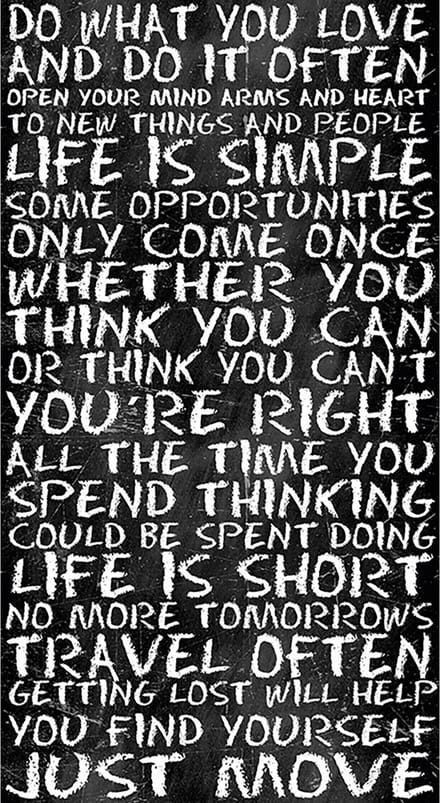 DO WHAT YOU LOVE
AND DO IT OFTEN
OPEN YOUR MIND ARMS AND HEART
TO NEW THINGS AND PEOPLE
LIFE IS SIMPLE
SOME OPPORTUNITIES
ONLY COME ONCE
WHETHER YOU
THINK YOU CAN
OR THINK YOU CAN'T
YOU'RE RIGHT
ALL THE TIME YOU
SPEND THINKING
COULD BE SPENT DOING
LIFE IS SHORT
NO MORE TOMORROWS
TRAVEL OFTEN
GETTING LOST WILL HELP
YOU FIND YOURSELF
JUST MOVE